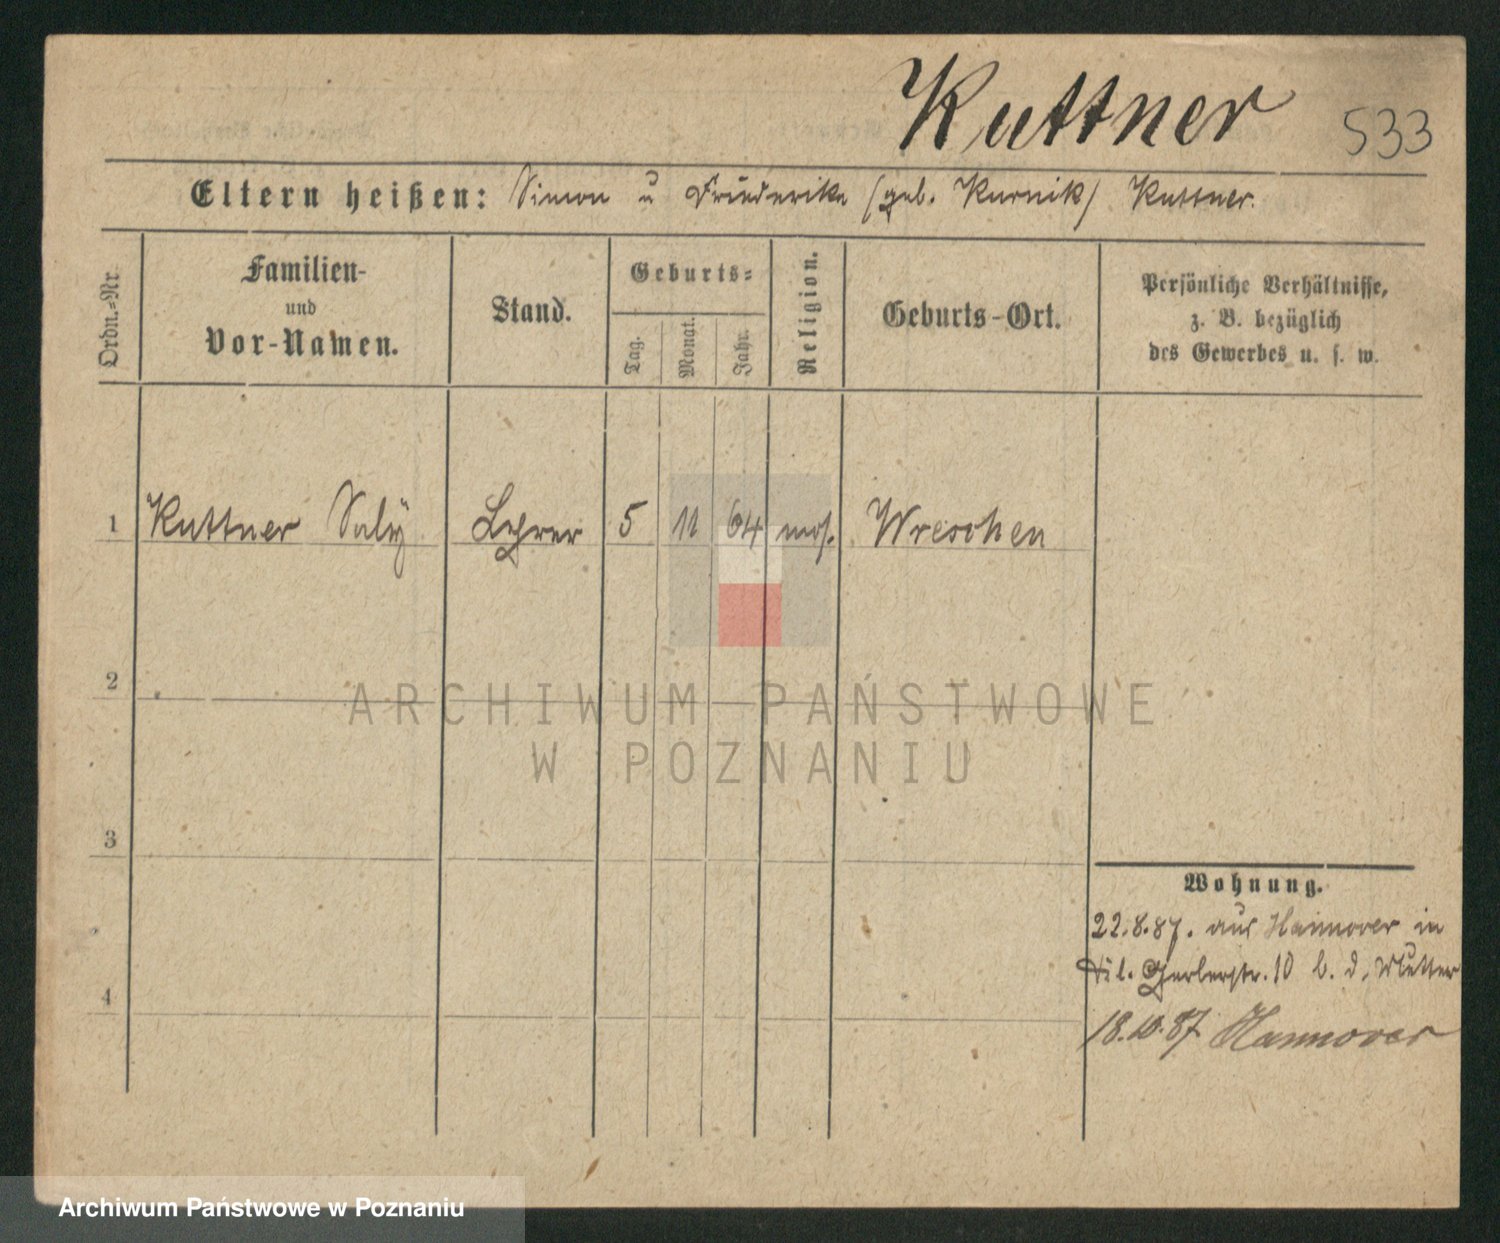 Kuttner 533
Eltern heißen: Simon u Friederike (geb. Kurnik) Kuttner.
Ordn.-Nr.
Familien-
und
Vor-Namen.
Stand.
Geburts-
Tag.
Monat.
Jahr.
Religion.
Geburts-Ort.
Persönliche Verhältnisse,
z. B. bezüglich
des Gewerbes u. s. w.
1 Kuttner Saly Lehrer 5 11 64 mos. Wreschen
2
ARCHIWUM PAŃSTWOWE
W POZNANIU
3
Wohnung.
22.8.87. aus Hannover in
Gerberstr. 10 b. d. Mutter
4
18.10.87 Hannover
Archiwum Państwowe w Poznaniu